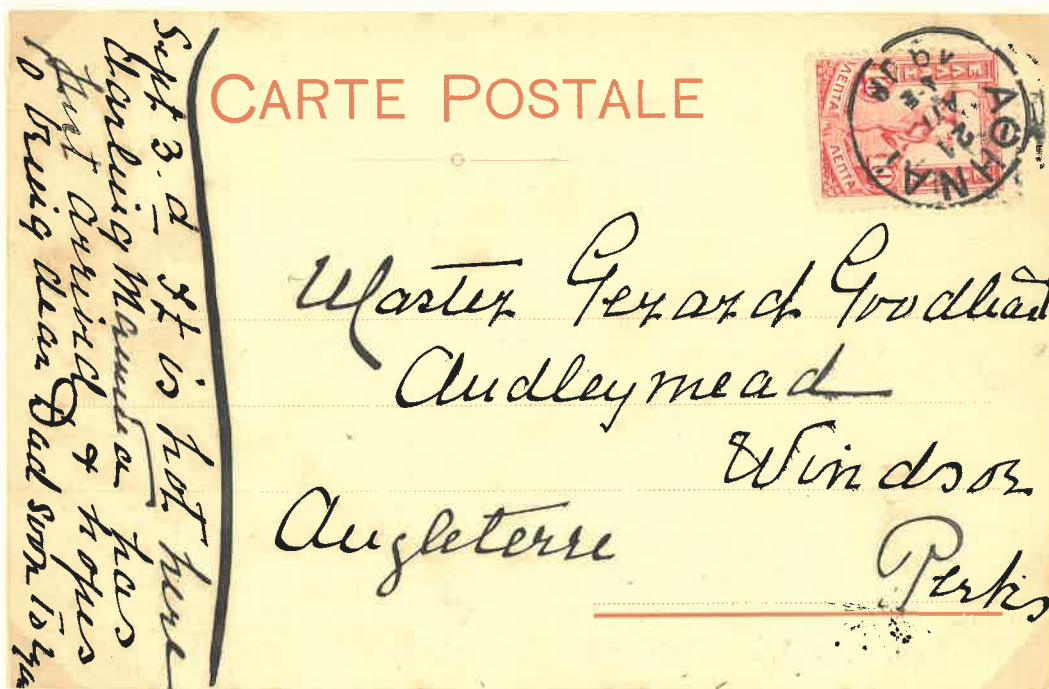 CARTE POSTALE
ΛΕΠΤΑ ΛΕΠΤΑ
ΑΘΗΝΑΙ
21
Master Gerard Goodhart
Audleymead
Windsor
Angleterre
Berks
Sept 3.d It is hot here
Darling Mamma has
just arrived & hopes
to bring dear Dad soon to you